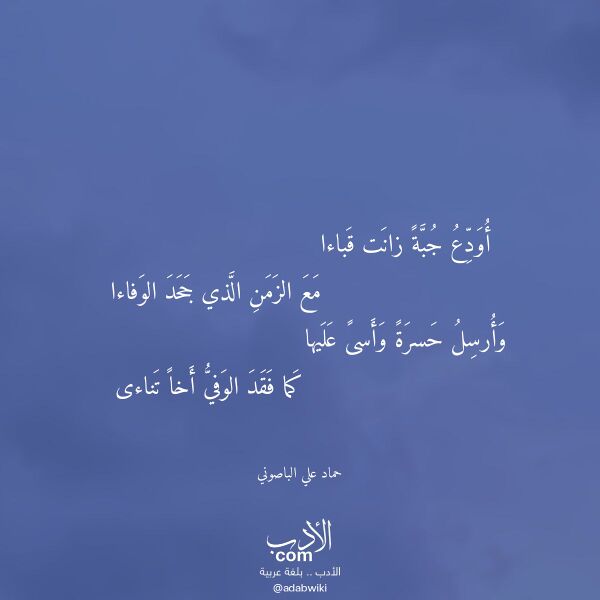 أُوَدِّعُ جُبَّةً زانَت قَباءا
مَعَ الزَمَنِ الَّذي جَحَدَ الوَفاءا
وَأُرسِلُ حَسرَةً وَأَسىً عَلَيها
كَما فَقَدَ الوَفِيُّ أَخاً تَناءى
حماد علي الباصوني
الأدب
com
الأدب .. بلغة عربية
@adabwiki